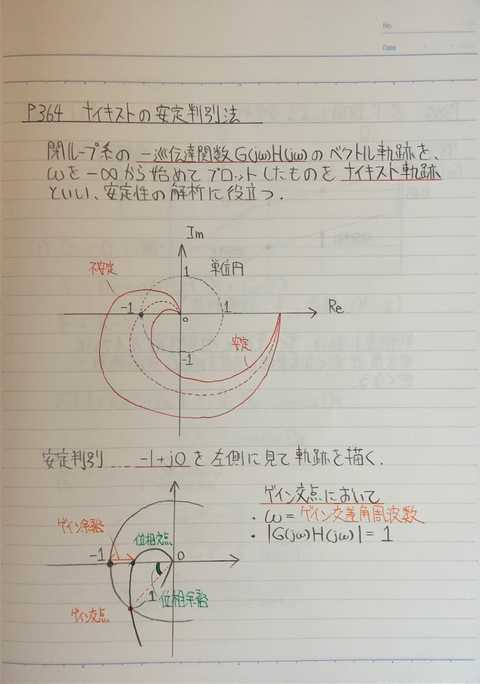 No.
Date
P364 ナイキストの安定判別法
閉ループ系の一巡伝達関数G(jω)H(jω)のベクトル軌跡を、
ωを-∞から始めてプロットしたものをナイキスト軌跡
といい、安定性の解析に役立つ.
Im
不安定
1
単位円
-1
1
0
Re
-1
安定
安定判別 -1+j0を左側に見て軌跡を描く.
ゲイン余裕
位相交点
-1
0
1
位相余裕
ゲイン交点
ゲイン交点において
・ω=ゲイン交差角周波数
・|G(jω)H(jω)|=1